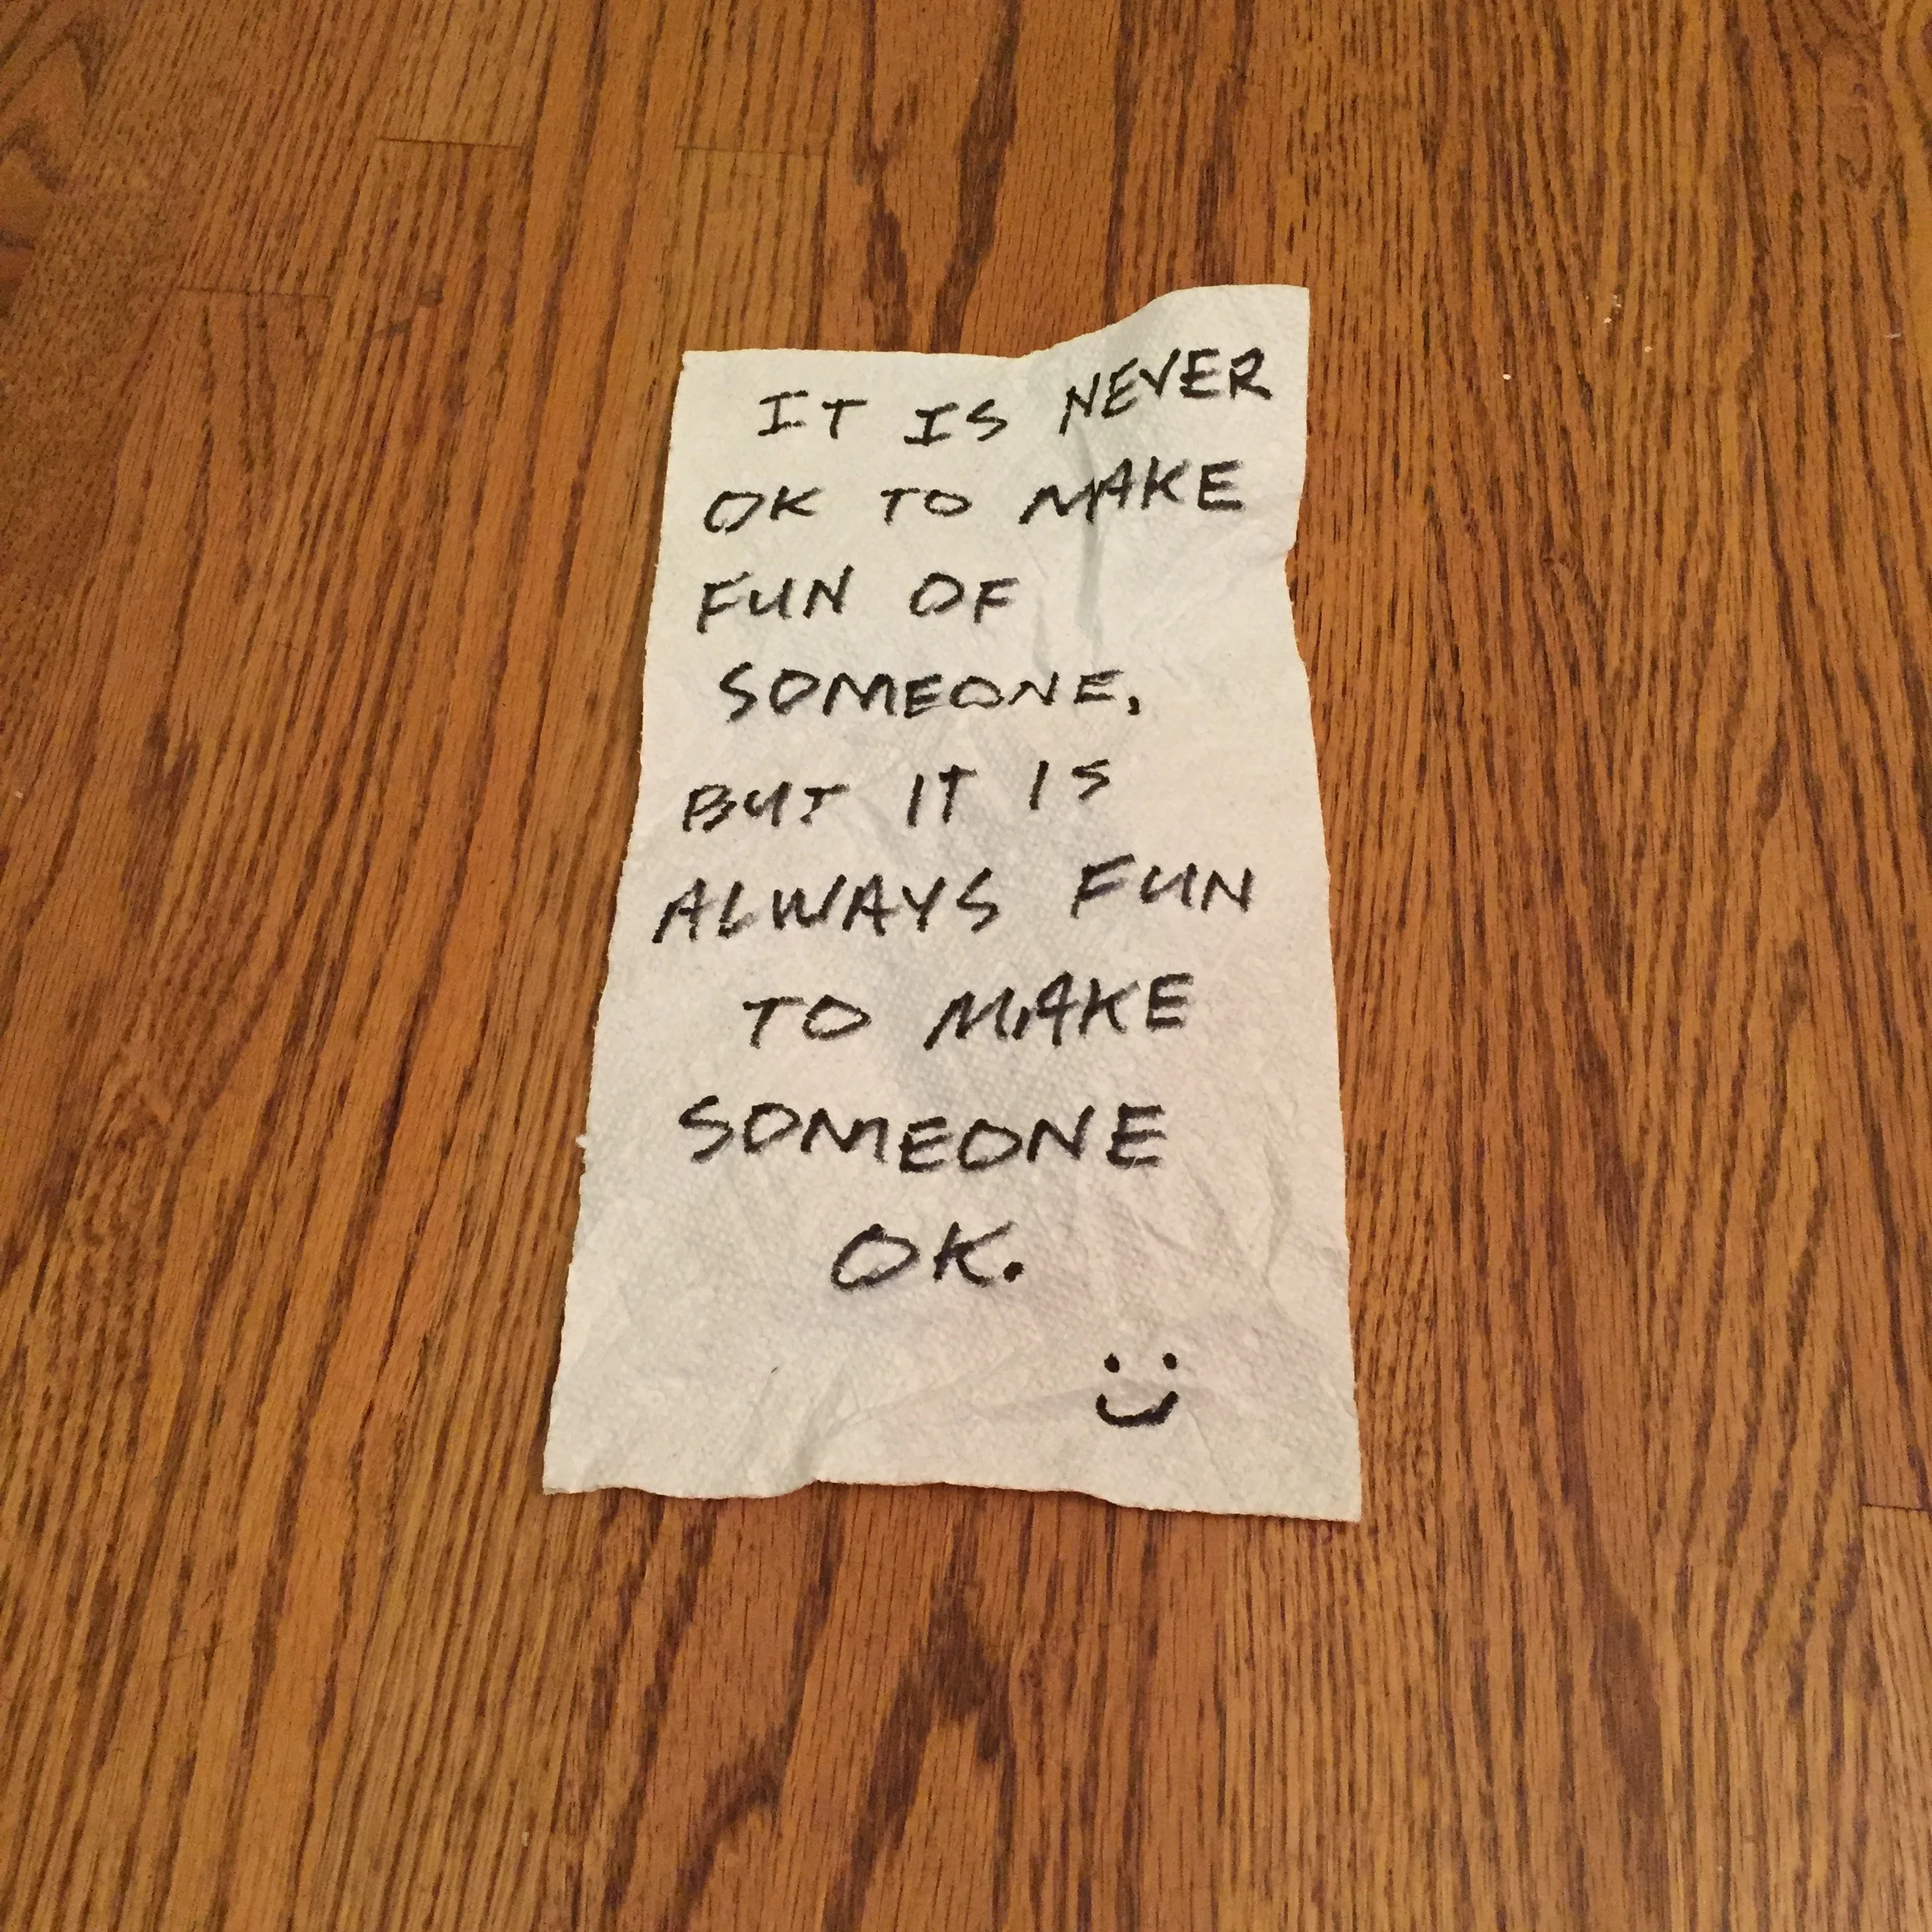 IT IS NEVER
OK TO MAKE
FUN OF
SOMEONE.
BUT IT IS
ALWAYS FUN
TO MAKE
SOMEONE
OK.